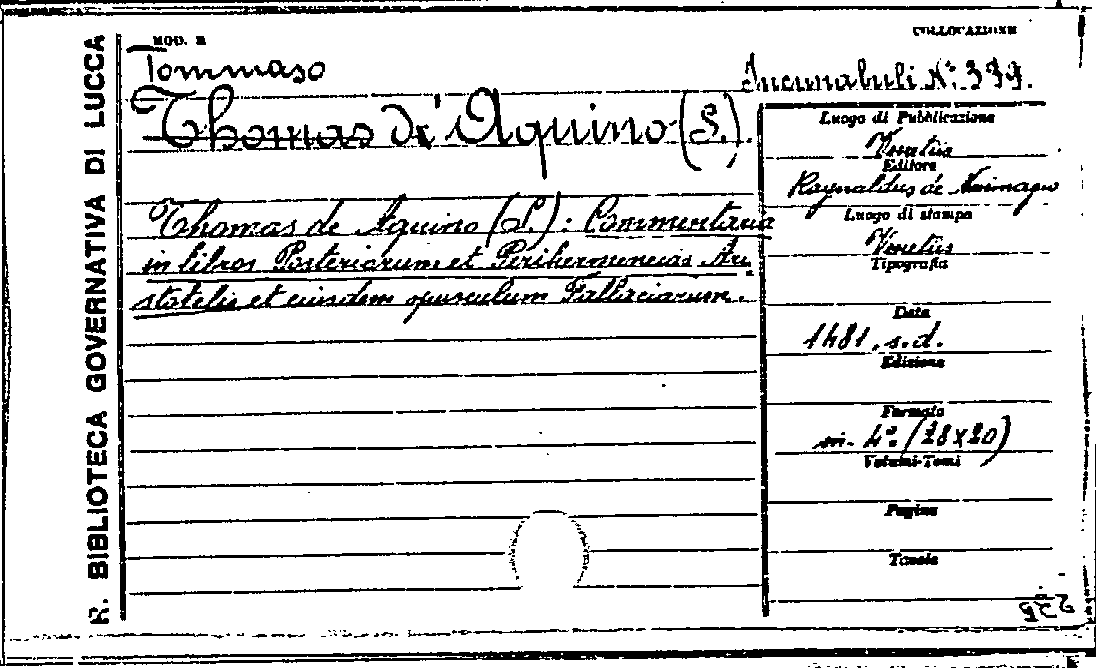 R. BIBLIOTECA GOVERNATIVA DI LUCCA
MOD. B
COLLOCAZIONE
Tommaso
Incunabuli N.° 379.
Thomas de' Aquino (S.).
Thomas de Aquino (S.): Commentaria
in libros Posteriorum et Perihermeneias Ari
stotelis et eiusdem opusculum Fallaciarum.
Luogo di Pubblicazione
Venetiis
Editore
Raynaldus de Novimagio
Luogo di stampa
Venetiis
Tipografia
Data
1481, s.d.
Edizione
Formato
in-4.° (28x20)
Volumi-Tomi
Pagine
Tavole